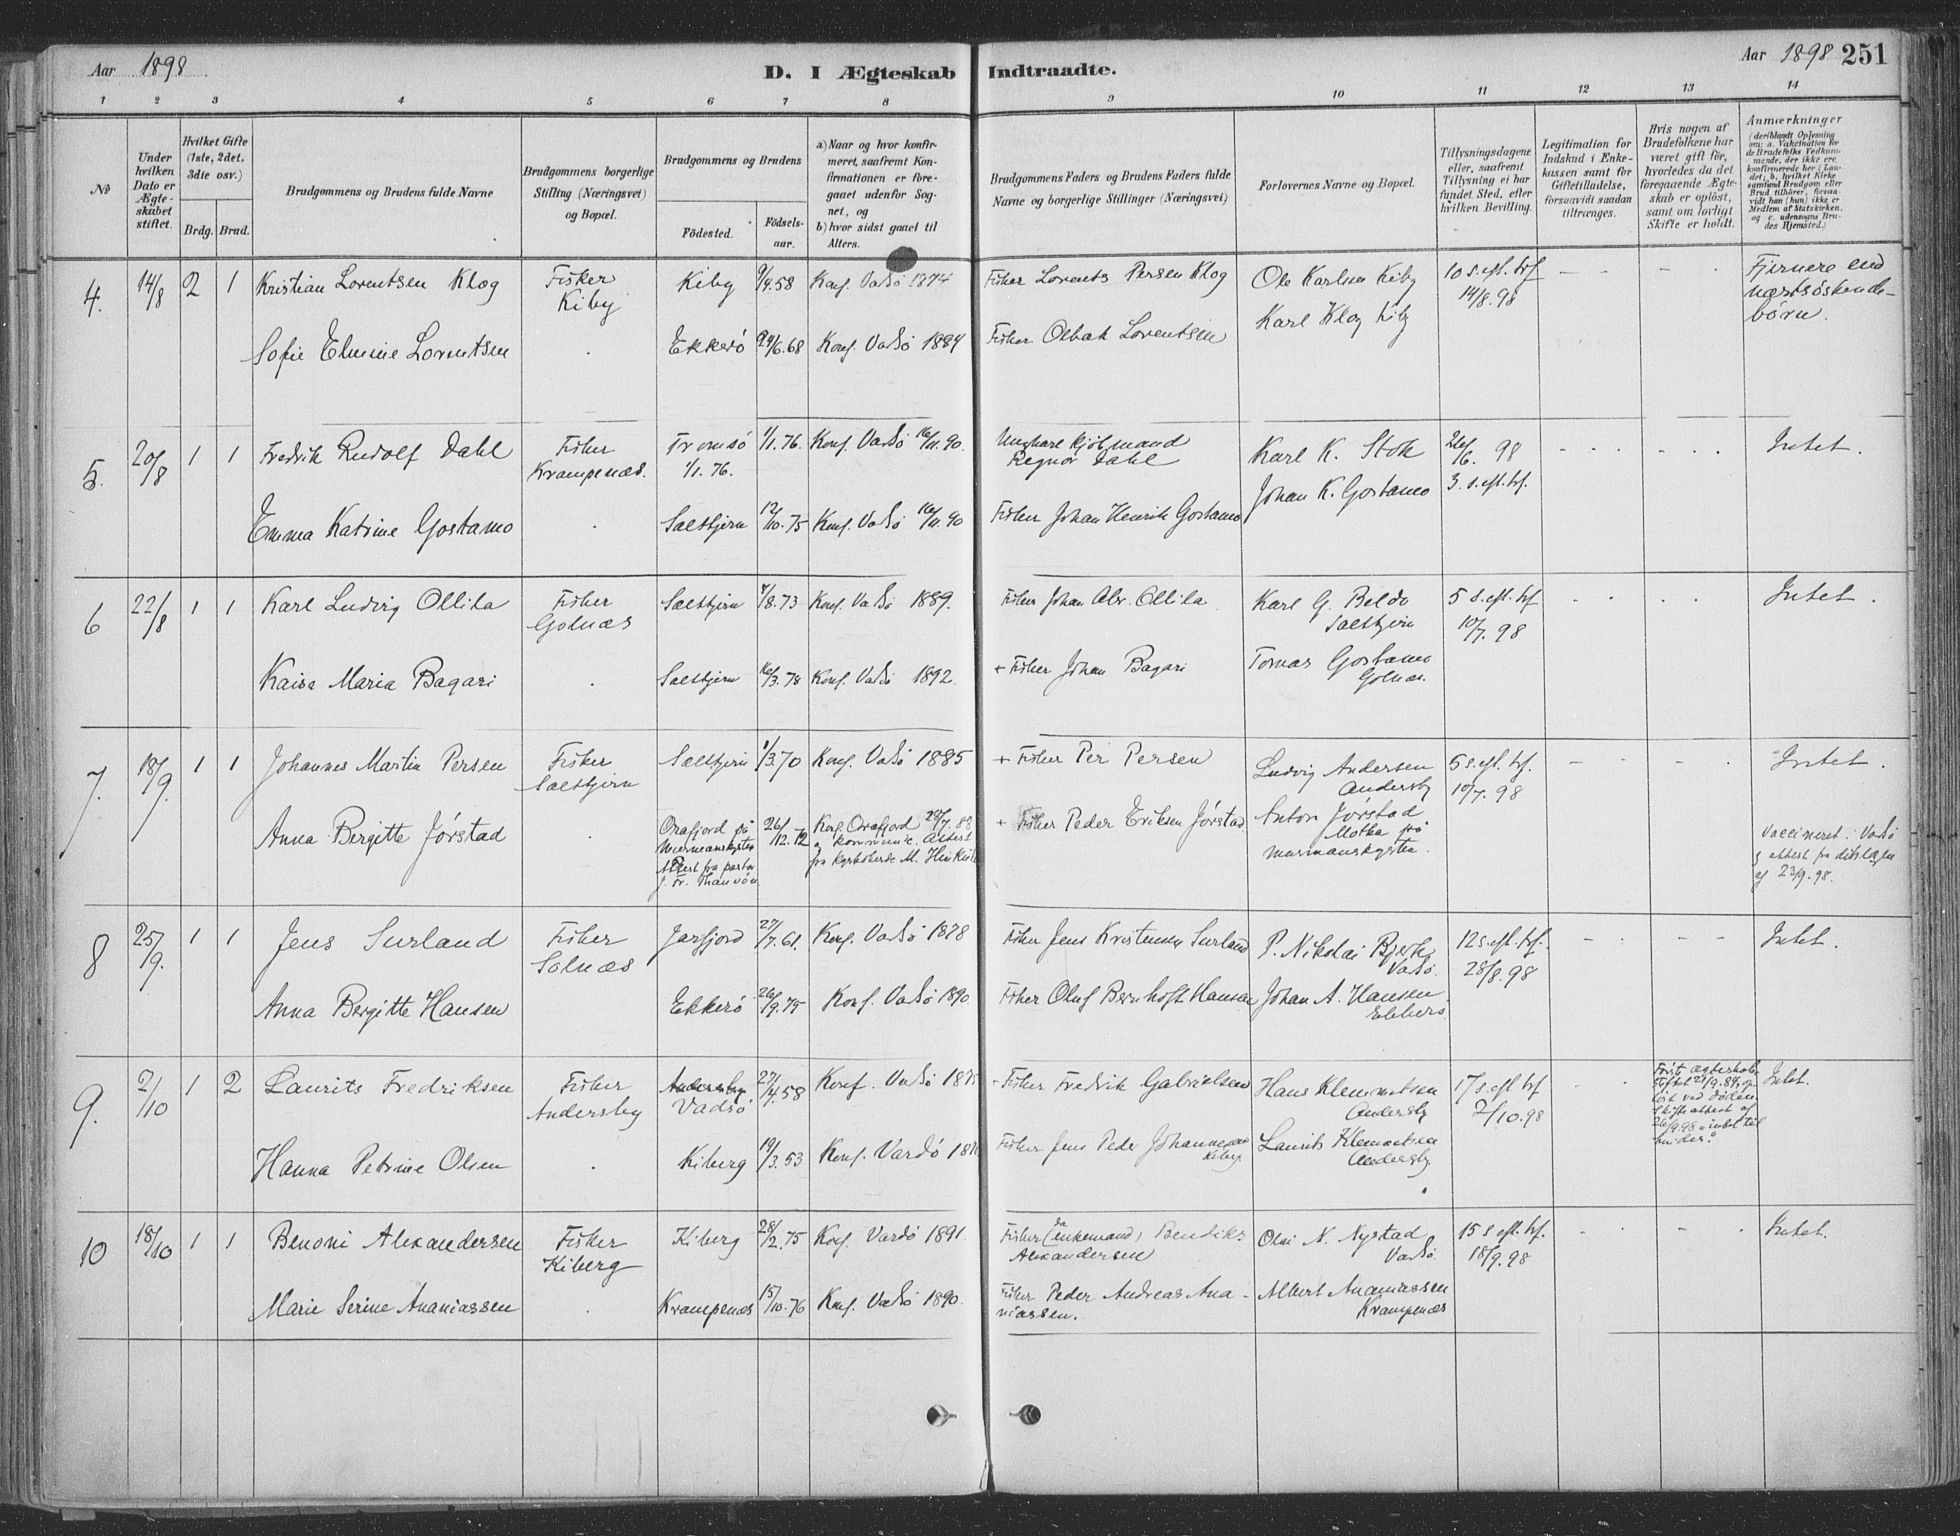 Aar 1898
D. I Ægteskab Indtraadte.
Aar 1898 251
1 2 3 4 5 6 7 8 9 10 11 12 13 14
No
Under hvilken Dato er Ægteskabet stiftet.
Hvilket Gifte (1ste, 2det, 3die osv.)
Brdg. Brud.
Brudgommens og Brudens fulde Navne
Brudgommens borgerlige Stilling (Næringsvei) og Bopæl.
Brudgommens og Brudens
Födested.
Födselsaar.
a) Naar og hvor konfirmeret, saafremt Konfirmationen er foregaaet udenfor Sognet, og
b) hvor sidst gaaet til Alters.
Brudgommens Faders og Brudens Faders fulde Navne og borgerlige Stillinger (Næringsvei)
Forlovernes Navne og Bopæl.
Tillysningsdagene eller, saafremt Tillysning ei har fundet Sted, efter hvilken Bevilling.
Legitimation for Indskud i Enkekassen samt for Giftetilladelse, forsaavidt saadan tiltrænges.
Hvis nogen af Brudefolkene har været gift för, hvorledes da det foregaaende Ægteskab er oplöst, samt om lovligt Skifte er holdt.
Anmærkninger
(deriblandt Oplysning om: a. Vakcination for de Brudefolks Vedkommende, der ikke ere konfirmerede her i Landet; b. hvilket Kirkesamfund Brudgom eller Brud tilhörer, forsaavidt han (hun) ikke er Medlem af Statskirken, og c. udensogns Brudes Hjemsted.)
4. 14/8 2 1 Kristian Lorentsen Klog Fisker Kiby Kiby 9/4.58 Konf. Vadsö 1874 Fisker Lorents Persen Klog Ole Karlsen Kiby 10 s. eft. trf. 14/8.98 - - - Fjernere end nærsöskendebörn.
Sofie Elmine Lorentsen Ekkerö 24/6.68 Konf. Vadsö 1884 Fisker Olbak Lorentsen Karl Klog Kiby
5. 20/8 1 1 Fredrik Rudolf Dahl Fisker Krampenæs. Tromsö 1/1.76. 1/1.76. Konf. Vadsö 16/11.90. Ungkarl kjöbmand Regnor Dahl Karl K. Stok 26/6 98 3. s. eft. trf. Intet.
Emma Katrine Gostamo Saltbjern 12/10.75 Konf. Vadsö 16/11.90 Fisker Johan Henrik Gostamo Johan K. Gostamo
6 22/8 1 1 Karl Ludvig Ollila Fisker Golnæs Saltbjern 7/8.73 Konf. Vadsö 1889. Fisker Johan Abr. Ollila Karl G. Beldo Saltbjern 5 s. eft. trf. 10/7.98 Intet.
Kaisa Maria Bagari Saltbjern 16/3.78 Konf. Vadsö 1892. + Fisker Johan Bagari Tomas Gostamo Golnæs.
7. 18/9. 1 1 Johannes Martin Persen Fisker Saltbjern Saltbjern 1/3.70 Konf. Vadsö 1885 + Fisker Per Persen Ludvig Andersen Andersby 5 s. eft. trf. 10/7.98 Intet.
Anna Bergitte Jörstad Orafjord på Murmankysten Attest fra pastor J. Fr. Thauvón 26/12.72 Konf. Orafjord 28/7.88 og kommunic. Attest fra kyrkoherde M. + Fisker Peder Eriksen Jörstad Anton Jörstad Motka på murmanskysten. Vaccineret i Vadsö attest fra distr.lægen af 23/9.98.
8 25/9. 1 1 Jens Surland Fisker Golnæs Jarfjord 27/7.61. Konf. Vadsö 1878 Fisker Jens Kristensen Surland P. Nikolai Bjerk Vadsö. 12 s. eft. trf. 28/8.98 Intet.
Anna Bergitte Hansen Ekkerö 26/9.75 Konf. Vadsö 1890 Fisker Oluf Bernhoft Hansen Johan A. Hansen Ekkerö.
9. 2/10 1 2 Laurits Fredriksen Fisker Andersby Andersby Vadsö 27/4.58 Konf. Vadsö Fisker Fredrik Gabrielsen Hans Klemmetsen Andersby 17 s. eft. trf. 2/10.98 Först ægteskab stiftet 29/9.89, oplöst ved döden. Skifteattest af 26/9.98 intet til hinder. Intet.
Hanna Petrine Olsen Kiberg 19/3.53 Konf. Vardö Fisker Jens Peder Johannesen Kiberg. Laurits Klemmetsen Andersby.
10 18/10 1 1 Benoni Alexandersen Fisker Kiberg Kiberg 28/2.75 Konf. Vardö 1891. Fisker (da enkemand) Bendiks Alexandersen Olai N. Nystad Vadsö. 15 s. eft. trf. 18/9.98 Intet.
Marie Serine Ananiassen Krampenæs 15/10.76 Konf. Vadsö 1890. Fisker Peder Andreas Ananiassen. Albert Ananiassen Krampenæs